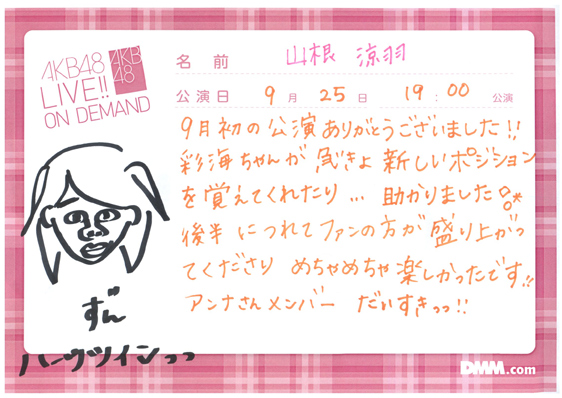 AKB48
LIVE!!
ON DEMAND
AKB
48
名前 山根 涼羽
公演日 9月25日 19:00 公演
9月初の公演ありがとうございました!!
彩海ちゃんが急きょ新しいポジション
を覚えてくれたり… 助かりました
後半につれてファンの方が盛り上がっ
てくださり めちゃめちゃ楽しかったです!!
アンナさんメンバー だいすきっっ!!
ずん
ハーフツインっっ
DMM.com